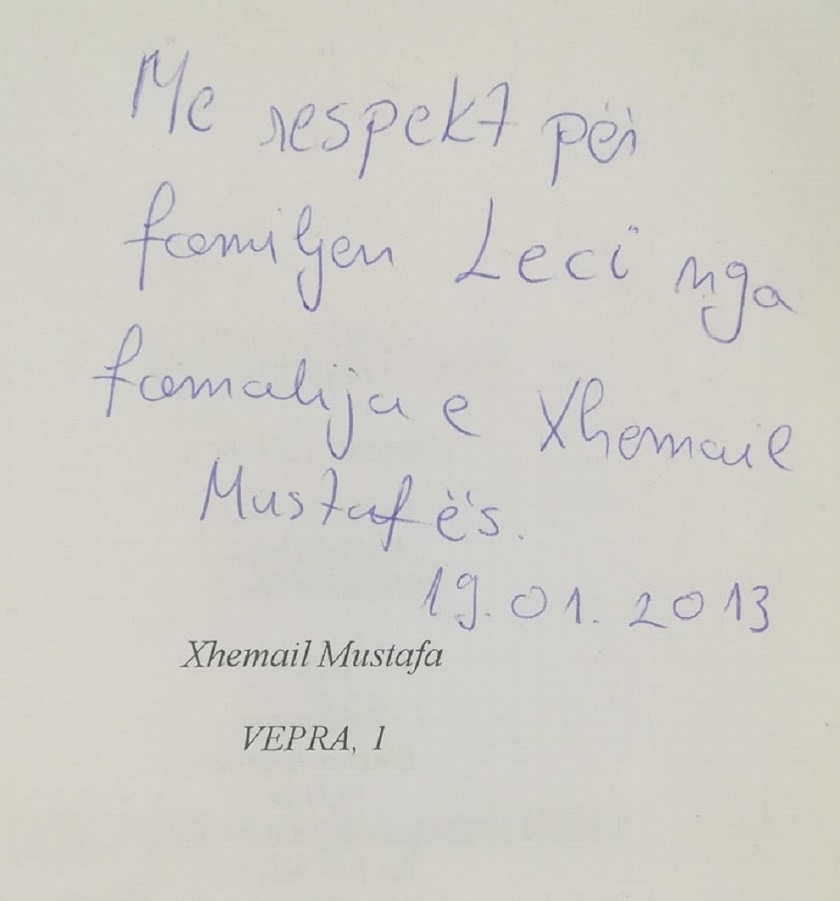 Me respekt për
familjen Leci nga
famalija e Xhemail
Mustafës.
19.01.2013
Xhemail Mustafa
VEPRA, 1